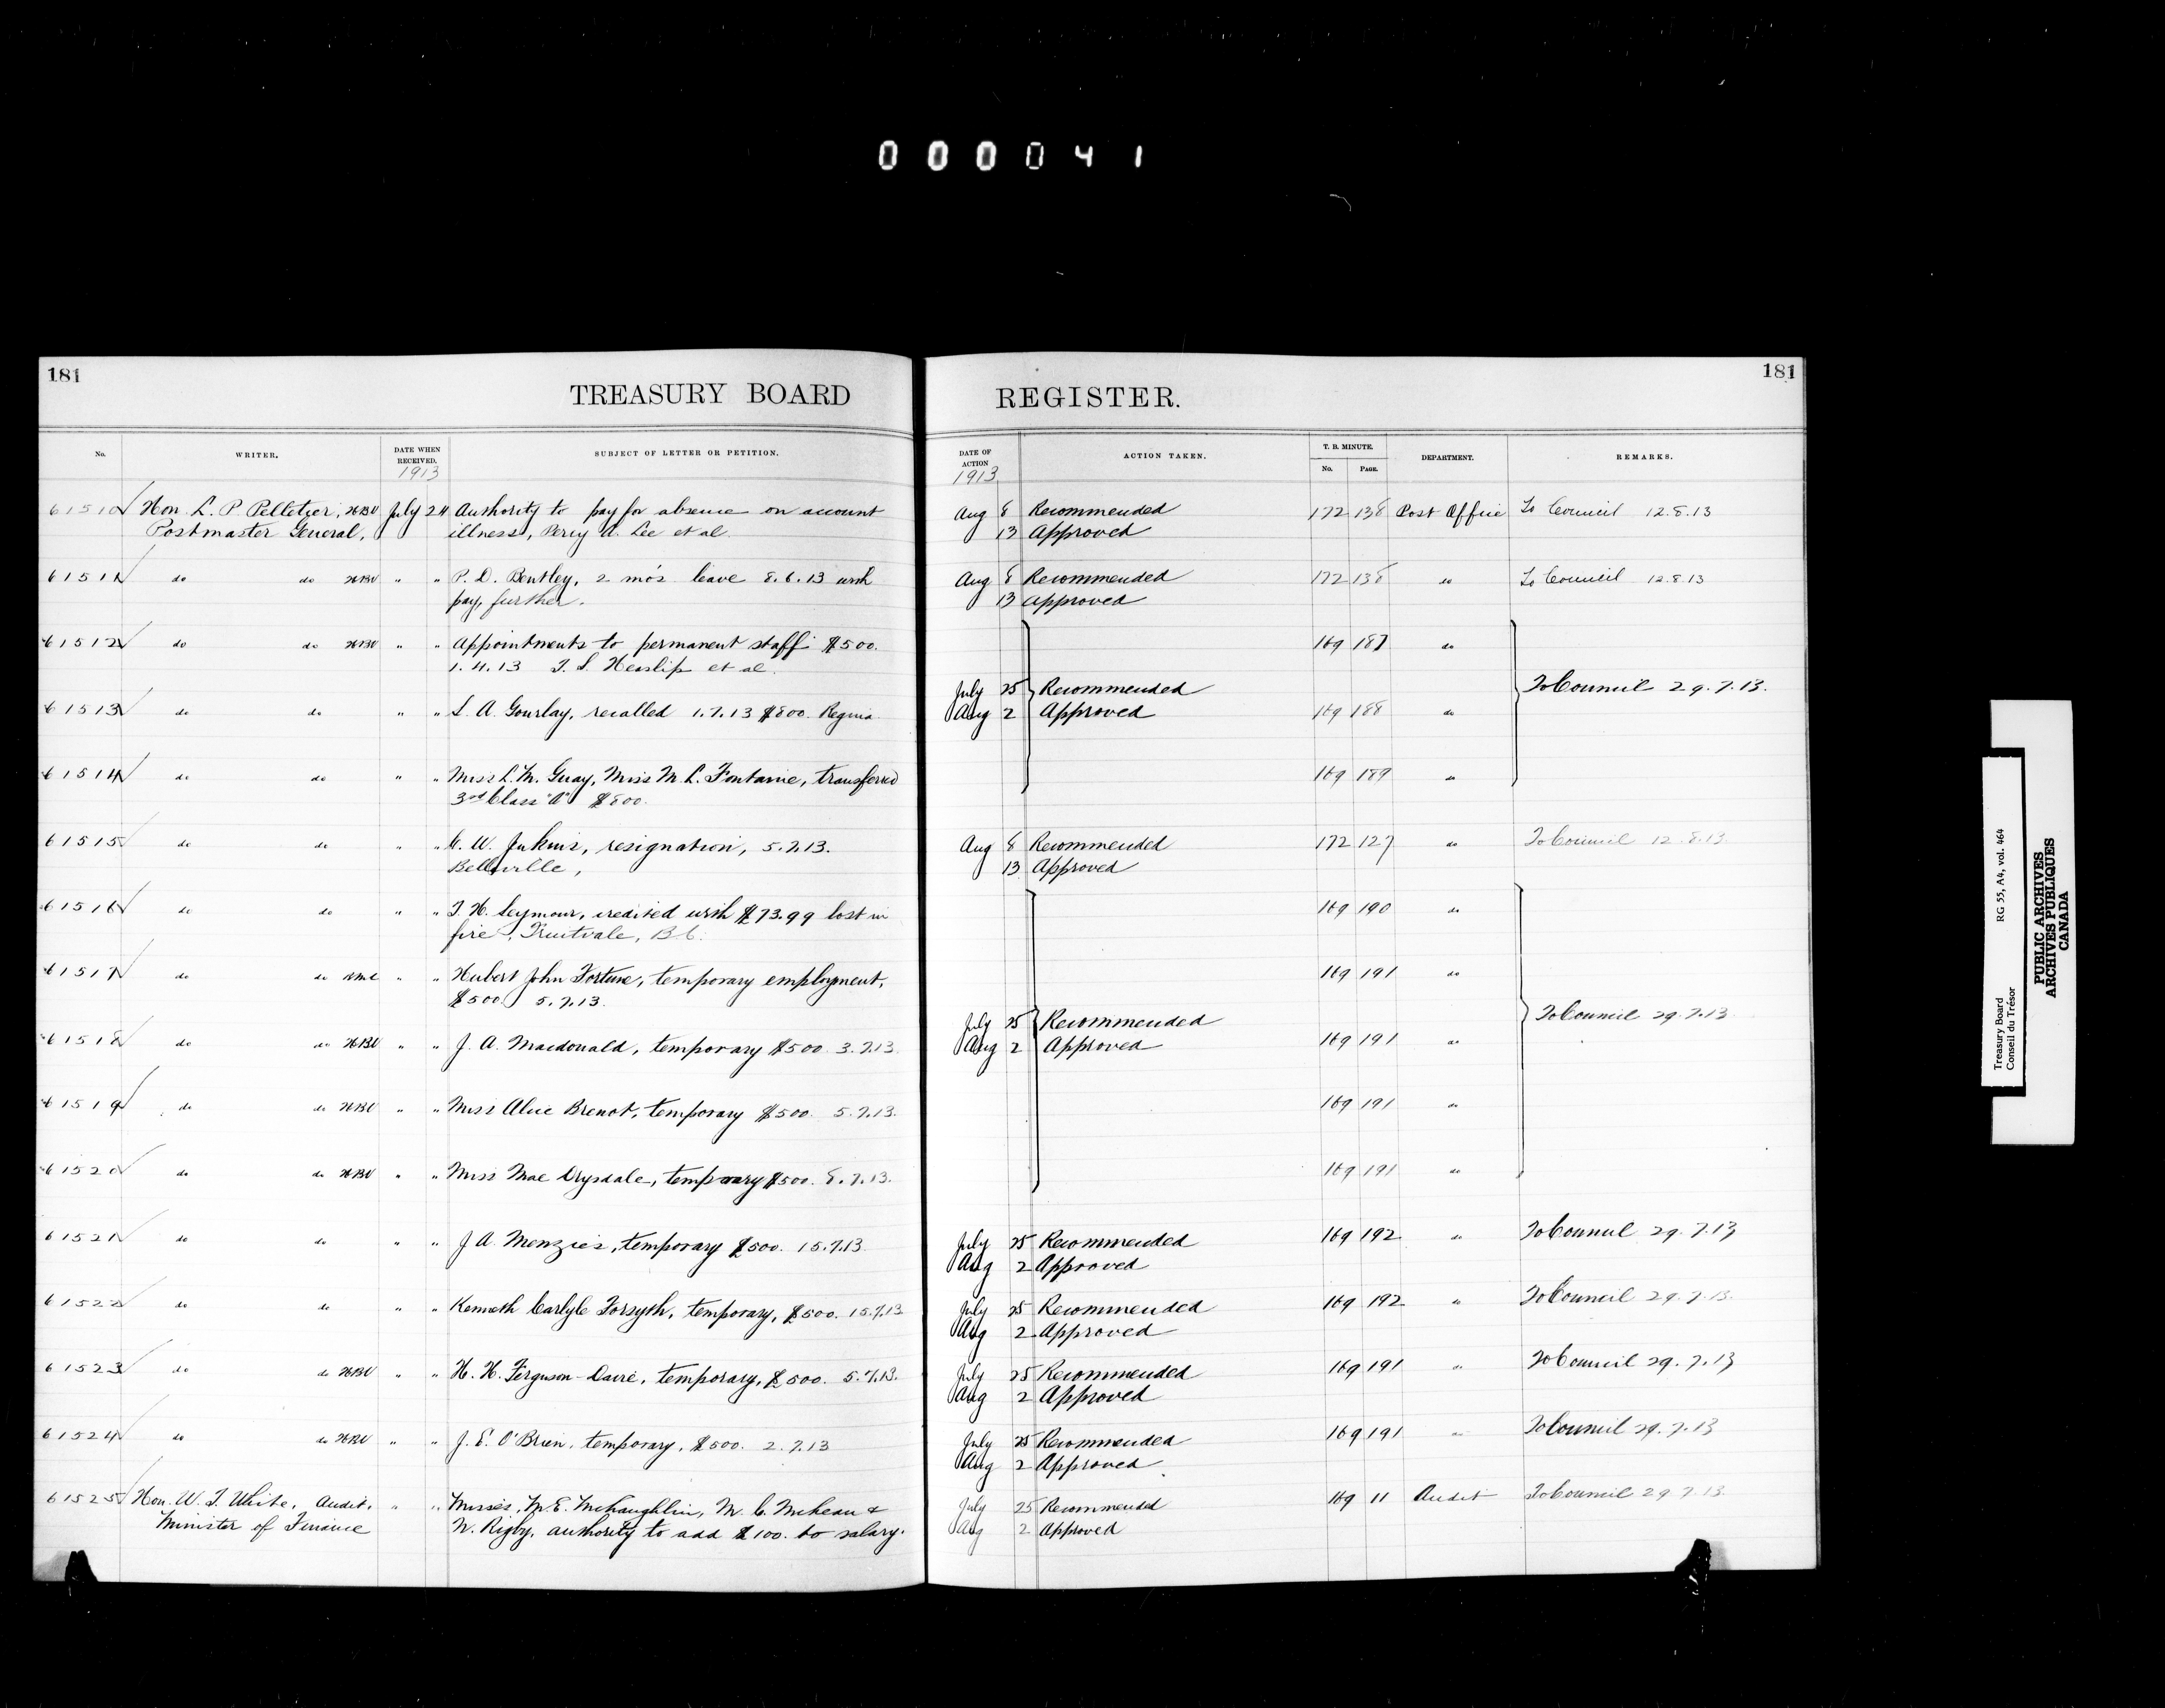 000041
181
TREASURY BOARD REGISTER.
181
No. WRITER. DATE WHEN RECEIVED. SUBJECT OF LETTER OR PETITION. DATE OF ACTION ACTION TAKEN. T. B. MINUTE. No. PAGE. DEPARTMENT. REMARKS.
1913 1913
61510 Hon. L. P. Pelletier, July 24 Authority to pay for absence on account Aug 8 Recommended 172 138 Post Office To Council 12.8.13
Postmaster General, illness, Percy A. Lee et al. 13 Approved
61511 do do " " P. D. Bentley, 2 mo's leave 8.6.13 with Aug 8 Recommended 172 138 do To Council 12.8.13
pay, further. 13 Approved
61512 do do " " Appointments to permanent staff $500. 169 187 do
1.4.13 T. S. Heaslip et al.
July 25 Recommended To Council 29.7.13.
61513 do do " " L. A. Gourlay, recalled 1.7.13 $800. Regina Aug 2 Approved 169 188 do
61514 do do " " Miss L. M. Guay, Miss M. L. Fontaine, transferred 169 189 do
3rd Class "A" $800.
61515 do do " " W. Jenkins, resignation, 5.7.13. Aug 8 Recommended 172 127 do To Council 12.8.13
Belleville, 13 Approved
61516 do do " " T. H. Seymour, credited with $73.99 lost in 169 190 do
fire, Fruitvale, B.C.
61517 do do " " Hubert John Fortune, temporary employment, 169 191 do
$500. 5.7.13.
July 25 Recommended To Council 29.7.13
61518 do do " " J. A. Macdonald, temporary $500. 3.7.13. Aug 2 Approved 169 191 do
61519 do do " " Miss Alice Brenot, temporary $500. 5.7.13. 169 191 do
61520 do do " " Miss Mae Drysdale, temporary $500. 8.7.13. 169 191 do
61521 do do " " J. A. Menzies, temporary $500. 15.7.13. July 25 Recommended 169 192 do To Council 29.7.13
Aug 2 Approved
61522 do do " " Kenneth Carlyle Forsyth, temporary, $500. 15.7.13 July 25 Recommended 169 192 " To Council 29.7.13.
Aug 2 Approved
61523 do do " " H. H. Ferguson-Davie, temporary, $500. 5.7.13. July 25 Recommended 169 191 " To Council 29.7.13
Aug 2 Approved
61524 do do " " J. E. O'Brien, temporary, $500. 2.7.13 July 25 Recommended 169 191 To Council 29.7.13
Aug 2 Approved
61525 Hon. W. T. White, Audit. " " Misses, M. E. McLaughlin, M. C. & July 25 Recommended 169 11 Audit To Council 29.7.13
Minister of Finance N. Rigby, authority to add $100. to salary. Aug 2 Approved
Treasury Board RG 55, A4, vol. 464
Conseil du Trésor
PUBLIC ARCHIVES
ARCHIVES PUBLIQUES
CANADA